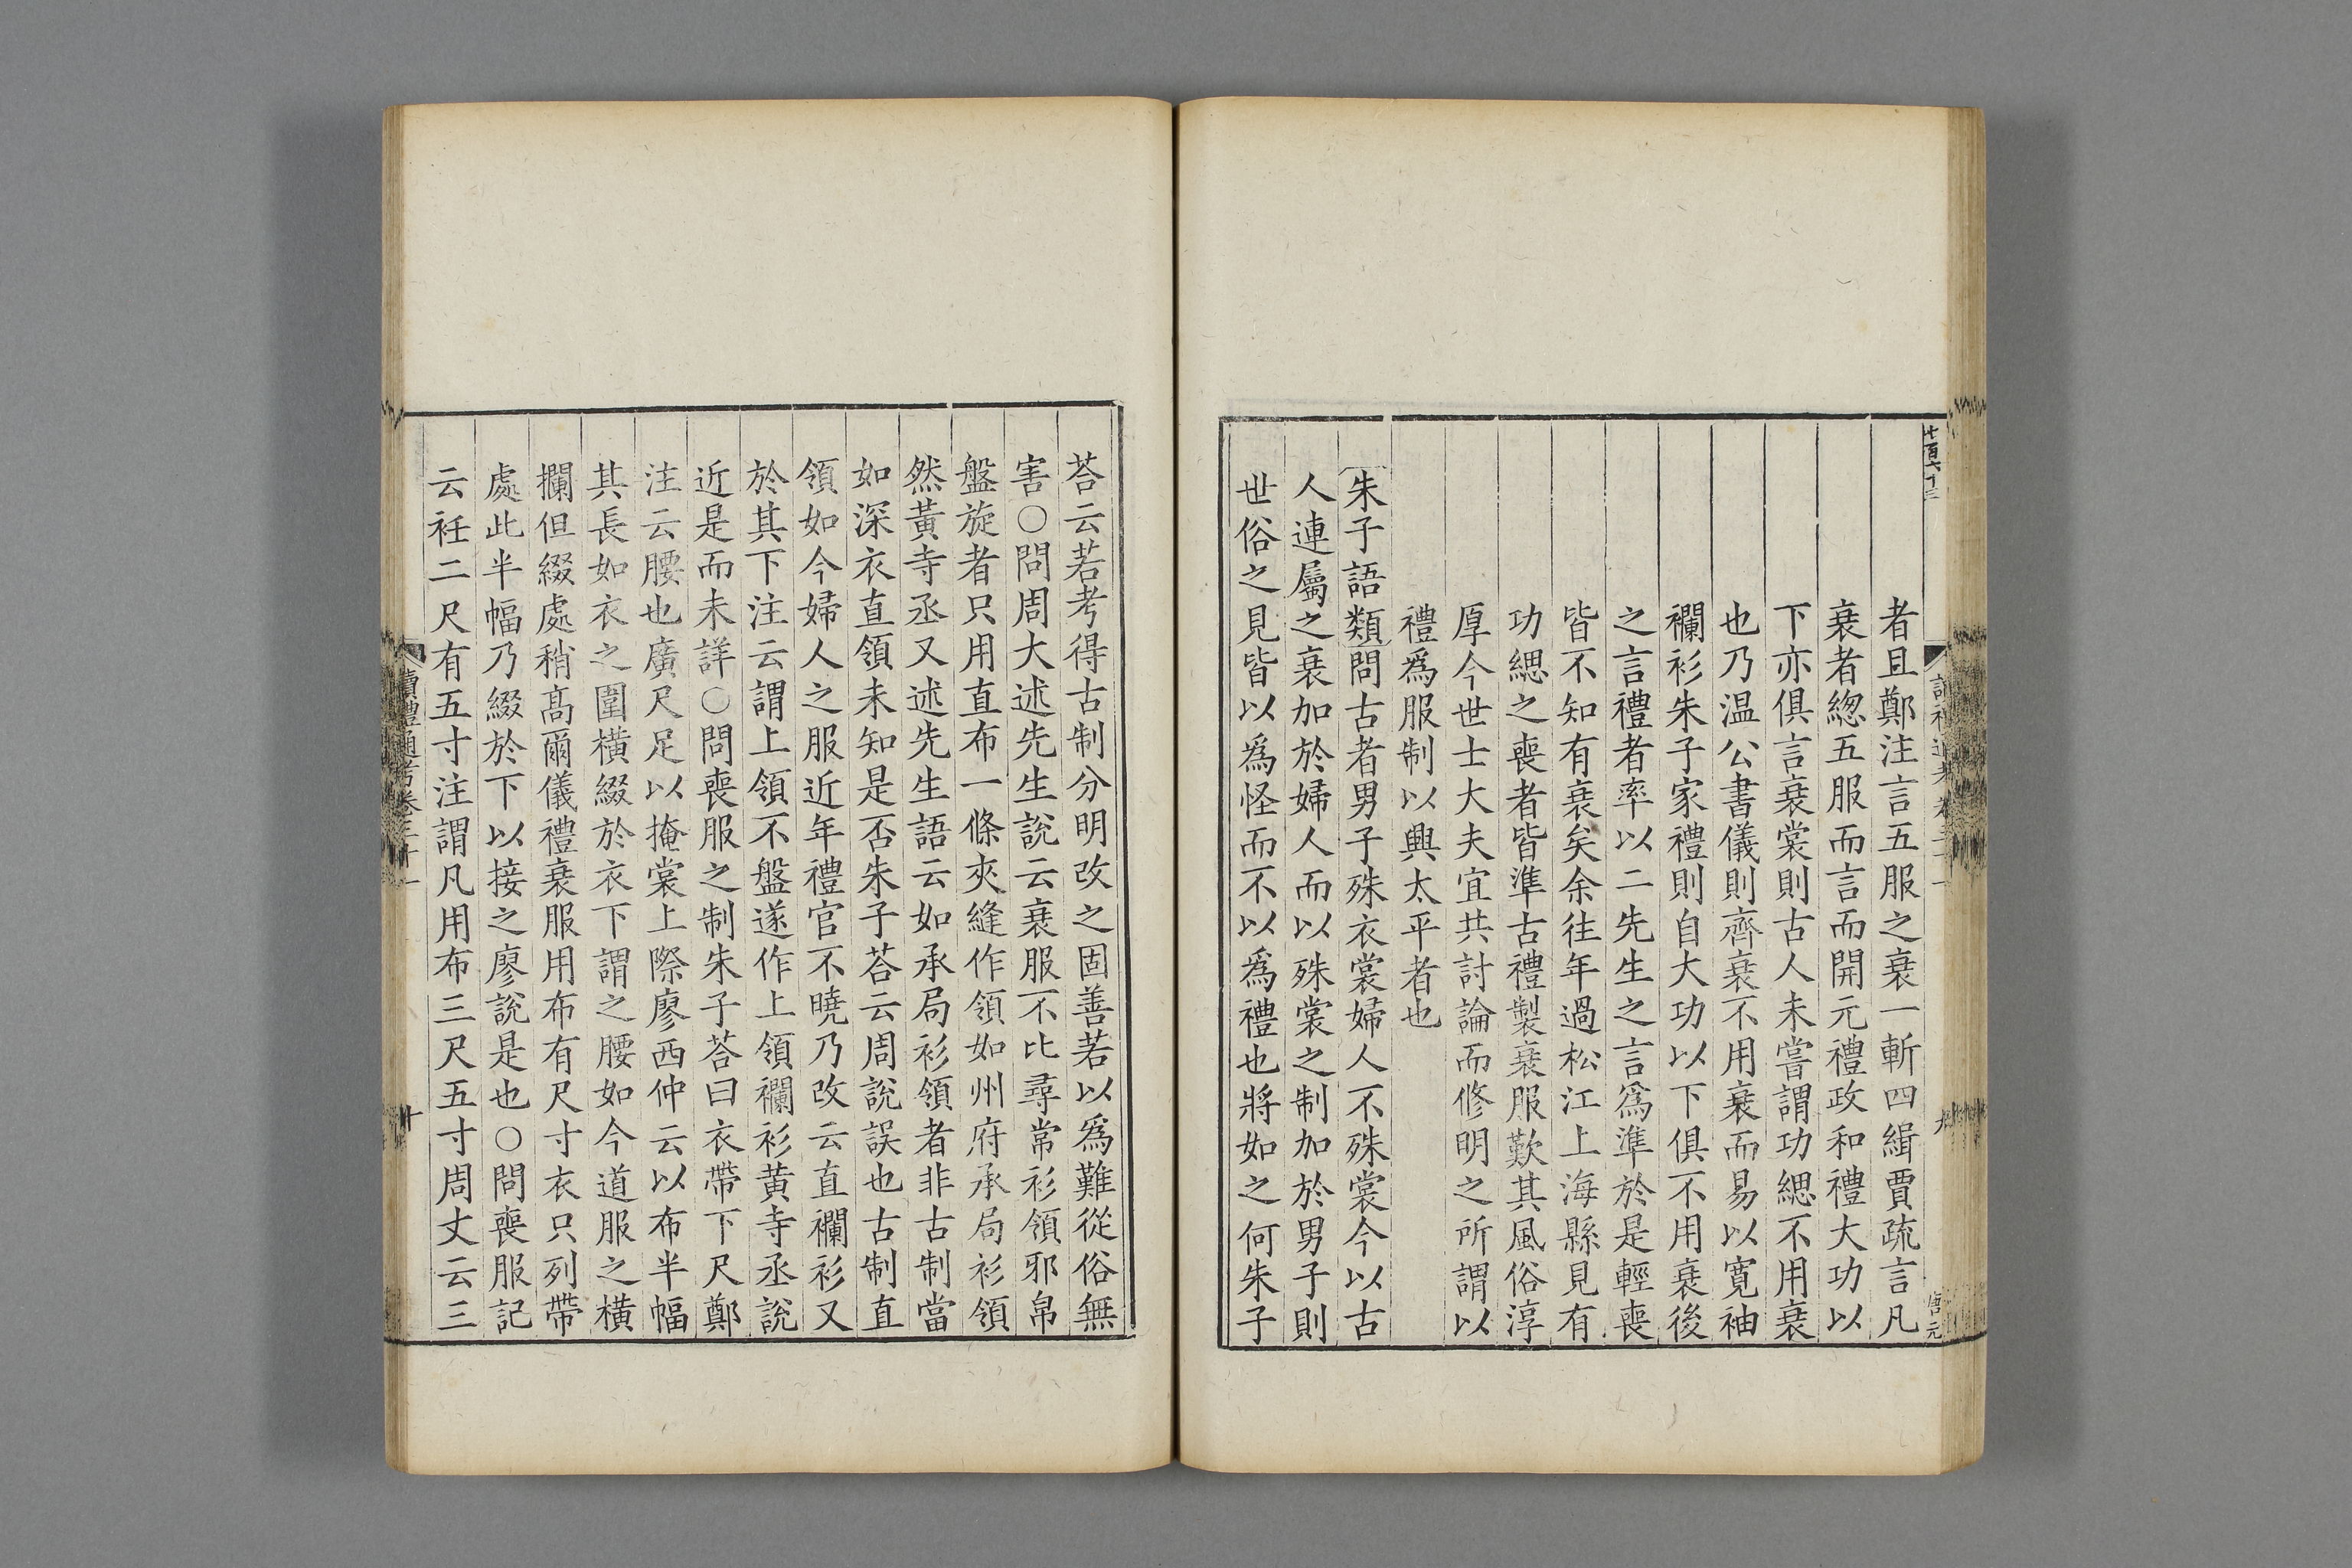 七百六十三
者且鄭注言五服之衰一斬四緝賈疏言凡
衰者緫五服而言而開元禮政和禮大功以
下亦俱言衰裳則古人未嘗謂功緦不用衰
也乃温公書儀則齊衰不用衰而易以寛袖
襴衫朱子家禮則自大功以下俱不用衰後
之言禮者率以二先生之言爲準於是輕喪
皆不知有衰矣余往年過松江上海縣見有
功緦之喪者皆準古禮製衰服歎其風俗淳
厚今世士大夫宜共討論而修明之所謂以
禮爲服制以興太平者也
朱子語類問古者男子殊衣裳婦人不殊裳今以古
人連屬之衰加於婦人而以殊裳之制加於男子則
世俗之見皆以爲怪而不以爲禮也將如之何朱子
荅云若考得古制分明改之固善若以爲難從俗無
害○問周大述先生說云衰服不比尋常衫領邪帛
盤旋者只用直布一條夾縫作領如州府承局衫領
然黃寺丞又述先生語云如承局衫領者非古制當
如深衣直領未知是否朱子荅云周說誤也古制直
領如今婦人之服近年禮官不曉乃改云直襴衫又
於其下注云謂上領不盤遂作上領襴衫黃寺丞說
近是而未詳○問喪服之制朱子荅曰衣帶下尺鄭
注云腰也廣尺足以掩裳上際廖西仲云以布半幅
其長如衣之圍橫綴於衣下謂之腰如今道服之橫
攔但綴處稍高爾儀禮衰服用布有尺寸衣只列帶
處此半幅乃綴於下以接之廖說是也○問喪服記
云衽二尺有五寸注謂凡用布三尺五寸周丈云三
讀禮通考卷三十一
十